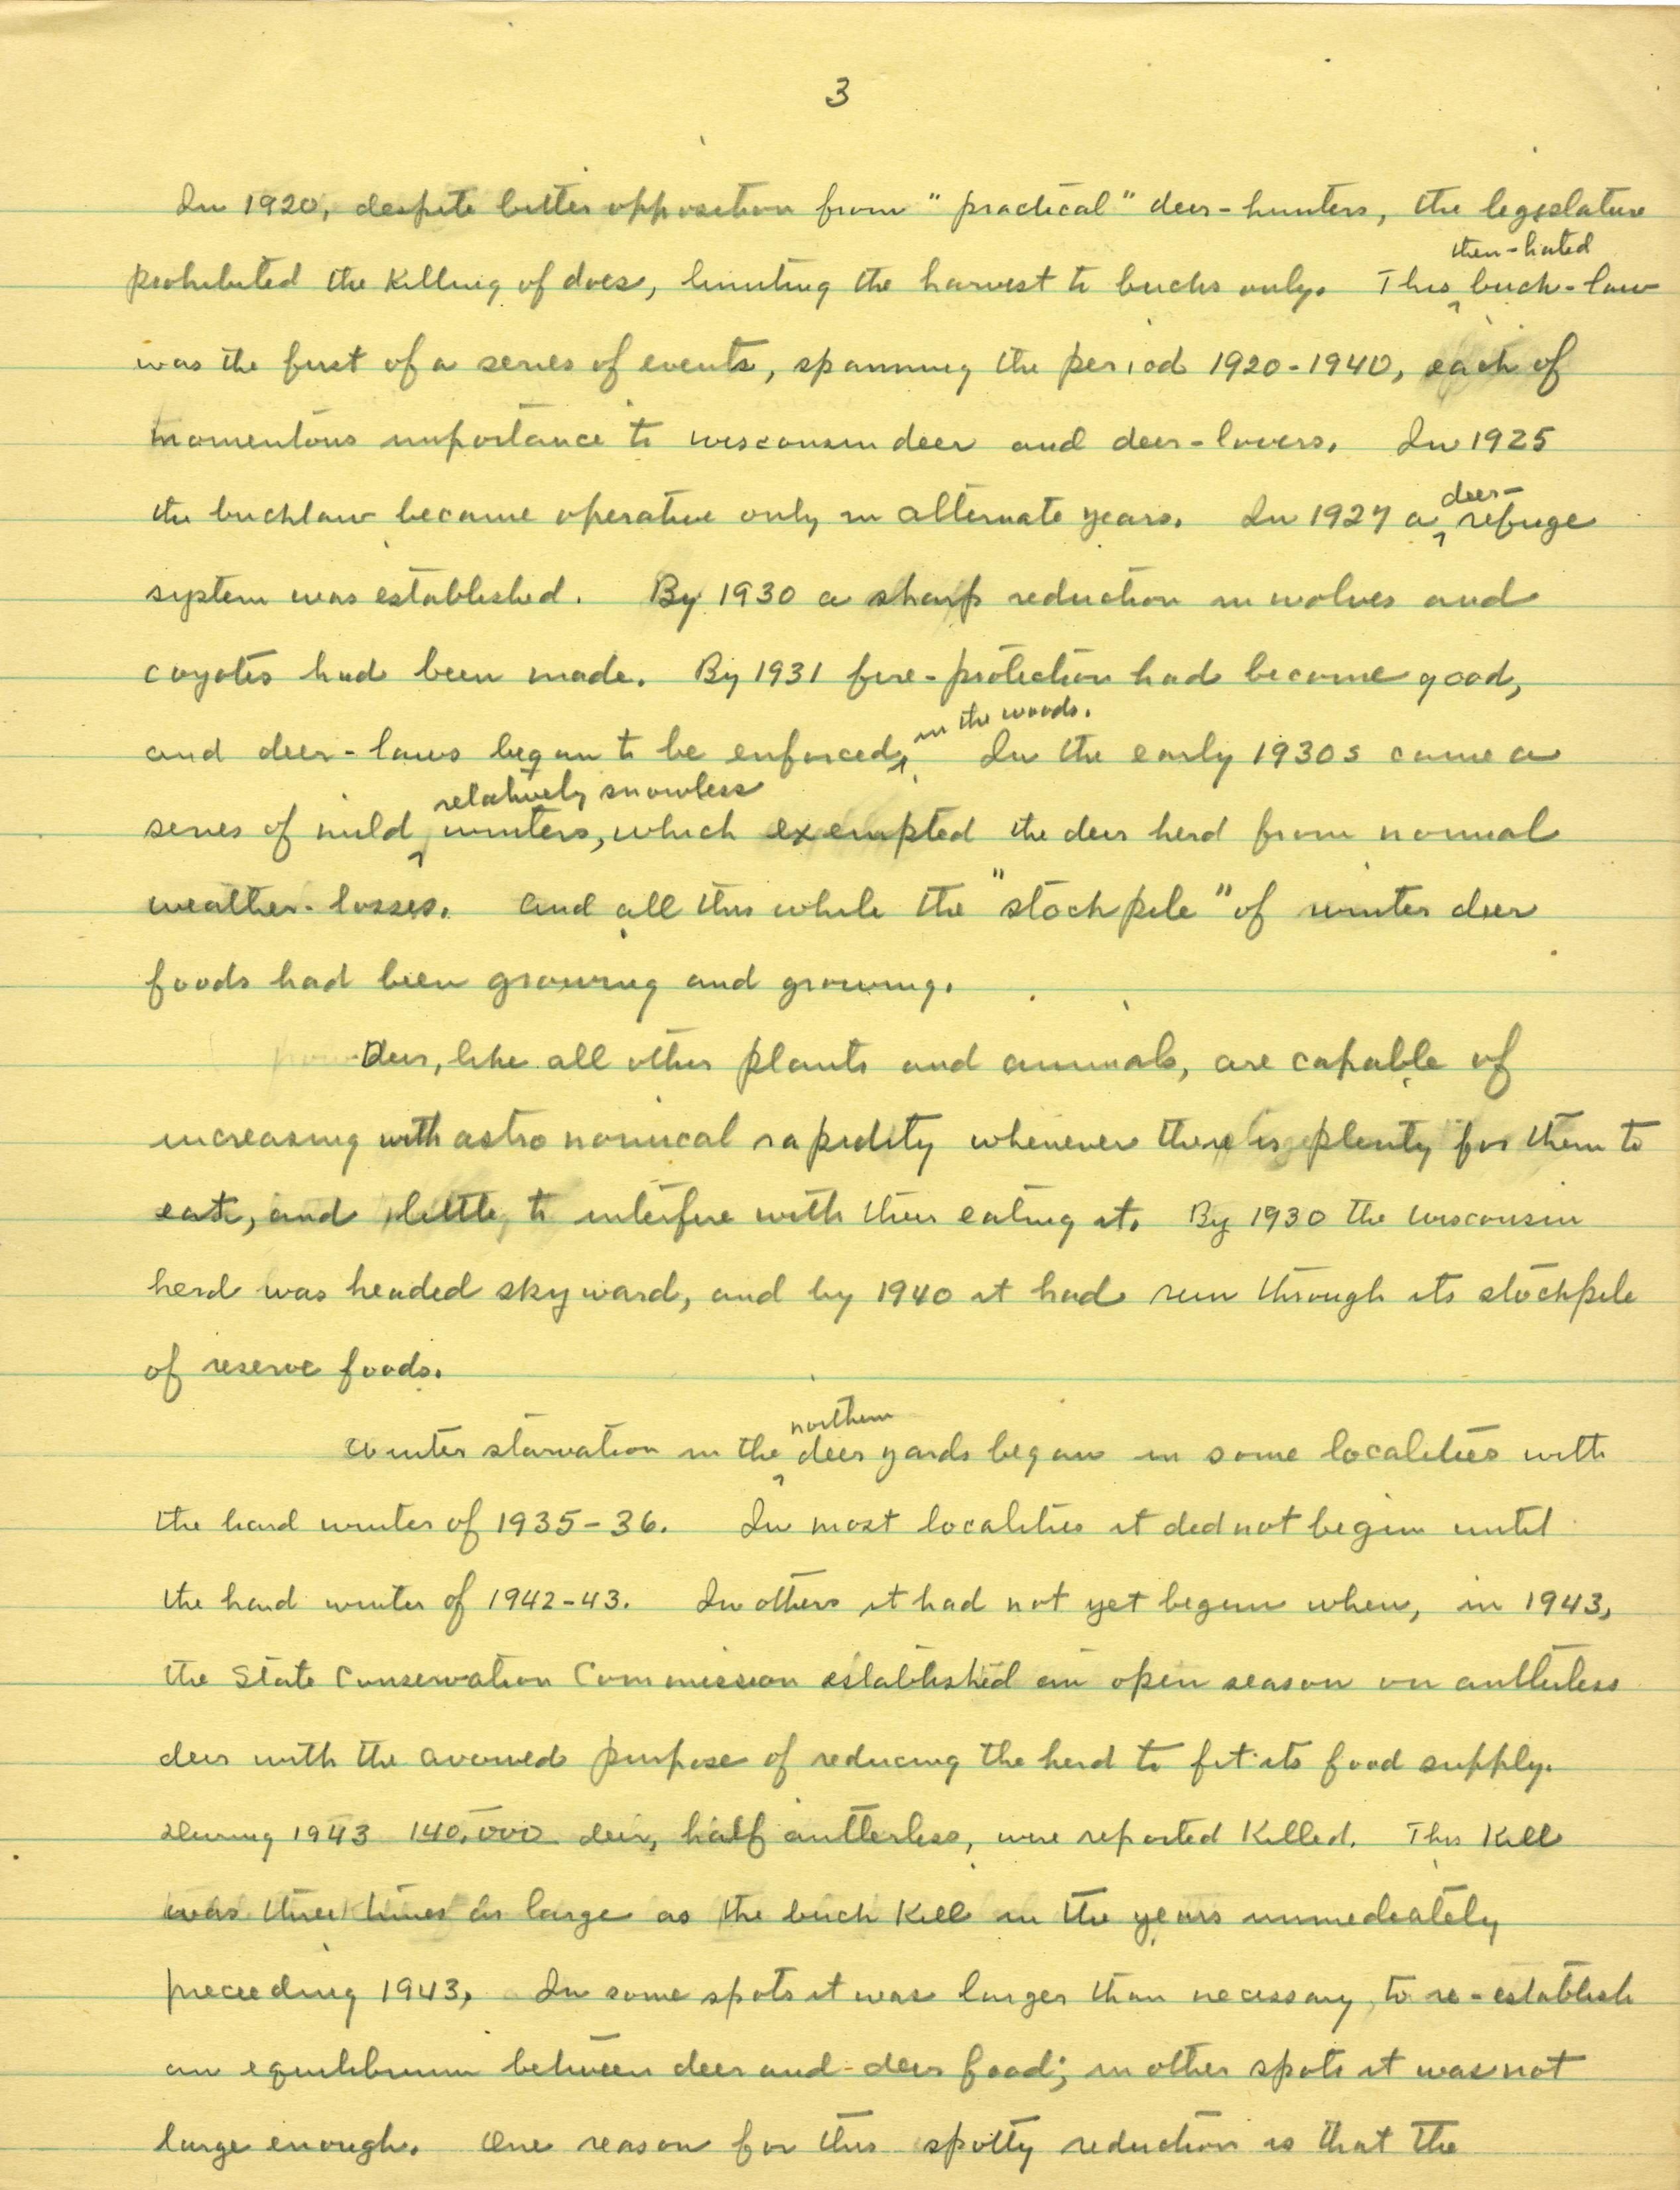 3
In 1920, despite bitter opposition from "practical" deer-hunters, the legislature
then-hated
prohibited the killing of does, limiting the harvest to bucks only. This ^ buck-law
was the first of a series of events, spanning the period 1920-1940, each of
momentous importance to wisconsin deer and deer-lovers. In 1925
deer-
the bucklaw became operative only in alternate years. In 1927 a ^ refuge
system was established. By 1930 a sharp reduction in wolves and
coyotes had been made. By 1931 fire-protection had become good,
in the woods.
and deer-laws began to be enforced ^ In the early 1930s came a
relatively snowless
series of mild ^ winters, which exempted the deer herd from normal
weather-losses. And all this while the "stockpile" of winter deer
foods had been growing and growing.
Deer, like all other plants and animals, are capable of
increasing with astronomical rapidity whenever there is plenty for them to
eat, and little to interfere with their eating it. By 1930 the Wisconsin
herd was headed skyward, and by 1940 it had run through its stockpile
of reserve foods.
northern
Winter starvation in the ^ deer yards began in some localities with
the hard winter of 1935-36. In most localities it did not begin until
the hard winter of 1942-43. In others it had not yet begun when, in 1943,
the State Conservation Commission established an open season on antlerless
deer with the avowed purpose of reducing the herd to fit its food supply.
During 1943 140,000 deer, half antlerless, were reported killed. This kill
was three times as large as the buck kill in the years immediately
preceeding 1943. In some spots it was larger than necessary to re-establish
an equilibrium between deer and deer food; in other spots it was not
large enough. One reason for this spotty reduction is that the